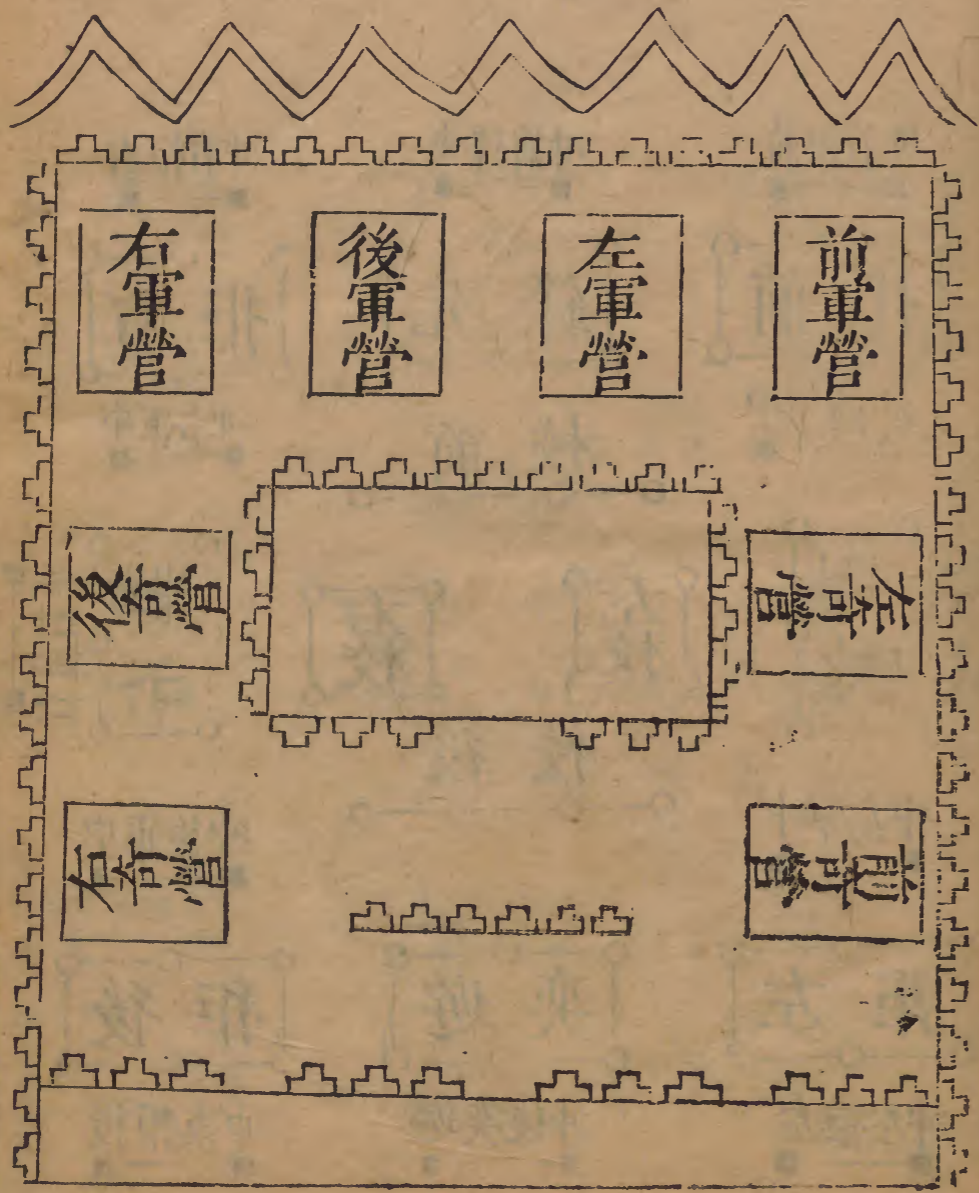 前軍營
左軍營
後軍營
右軍營
左奇營
後奇營
前奇營
右奇營